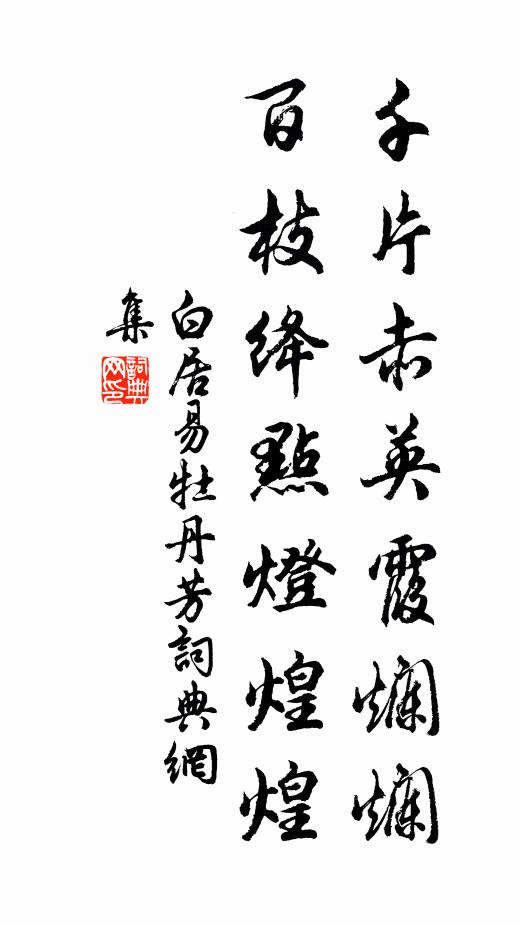 千片赤英霞爛爛
百枝絳點燈煌煌
白居易牡丹芳詞典網
集
詞典网印